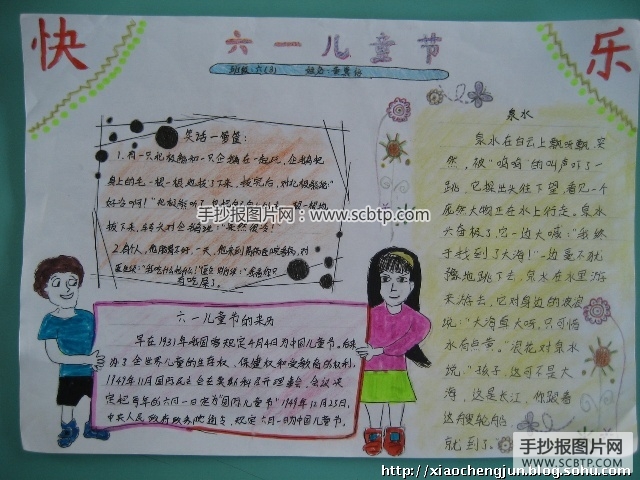 快
乐
六一儿童节
班级:六(3) 姓名:
笑话一箩筐:
1.有一只北极熊和一只企鹅在一起玩,企鹅把
身上的毛一根一根地拔了下来,拔完后,对北极熊说:“
好冷啊!”
拔下来,转头对企鹅说:“果然很冷!”
手抄报图片网:www.scbtp.com
六一儿童节的来历
早在1931年我国曾规定4月4日为中国儿童节。
办了全世界儿童的生存权、保健权和受教育的权利,
1949年11月国际民主会在莫斯科召开理事会,会议决
定把每年的六月一日定为“国际儿童节”1949年12月23日,
中央人民政府政务院通令,规定六月一日为中国儿童节。
泉水
泉水在白云上飘呀飘,突
然,被“呜呜”的叫声吓了一
跳,它探出头往下望,看见一个
庞然大物正在水上行走。泉水
六奋极了,它一边大喊:“我终
于找到了大海!”一边毫不犹
豫地跳下去,泉水在水里游来
游去,它对身边的波浪
说:“大海真大呀,只可惜
水有点黄。”浪花对泉水
说:“孩子,这可不是大
海,这是长江,你跟着
这艘轮船
就到了。
手抄报图片网
WWW.SCBTP.COM
http://xiaochengjun.blog.sohu.com